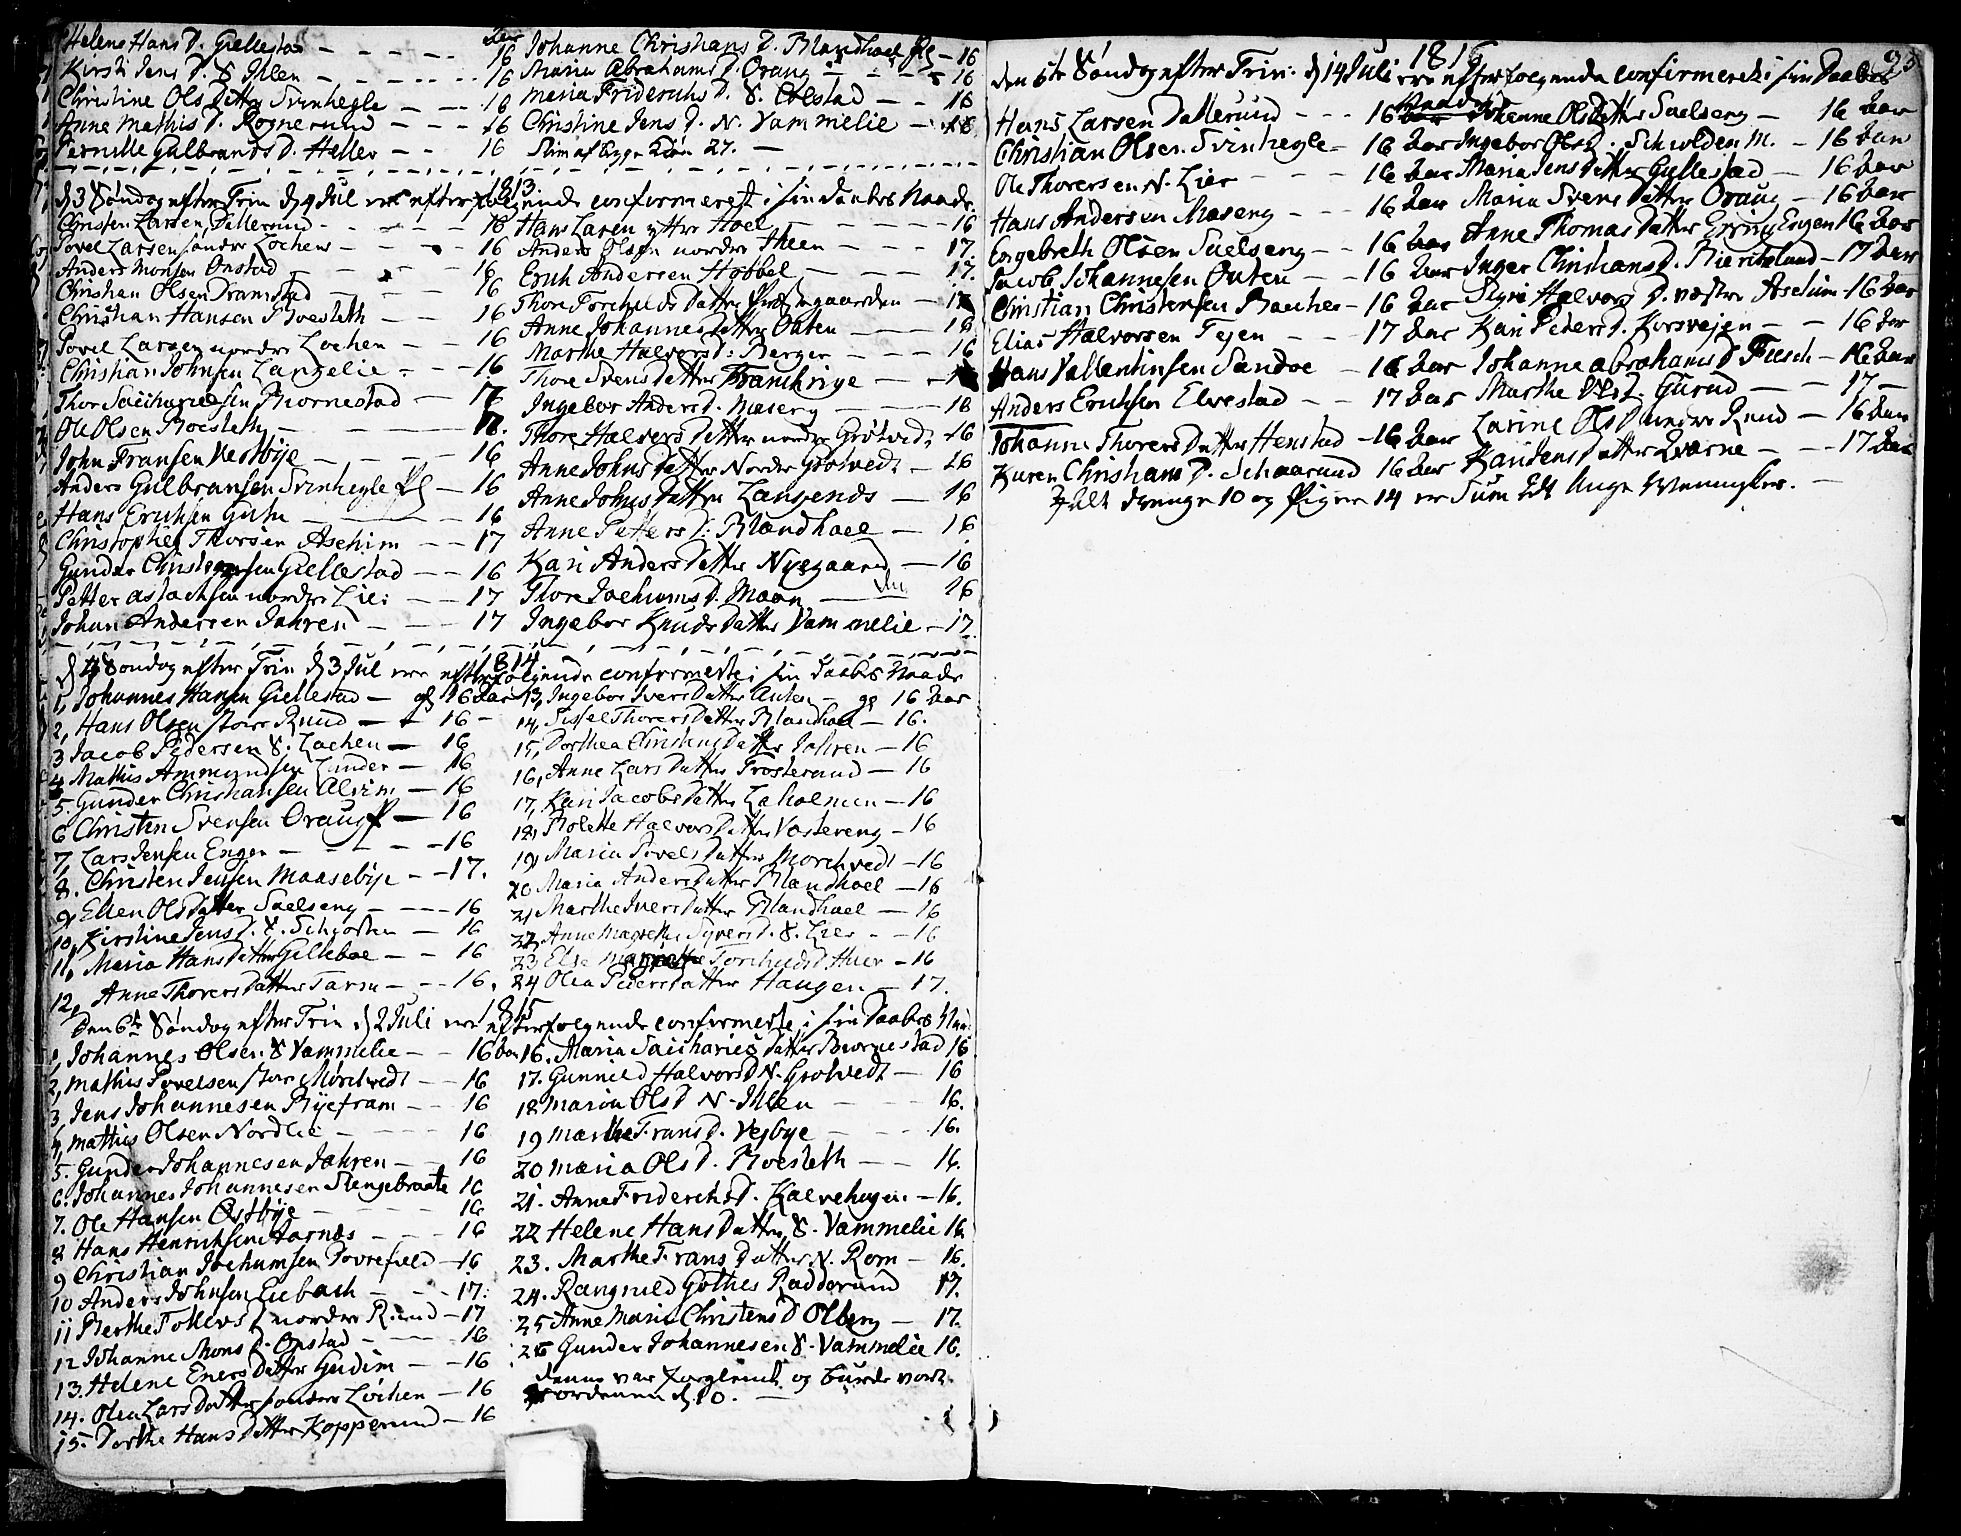 Helene Hans D. Giellestad — — — Aar 16
Kirsti Jens D. S. Ihlen — — — 16
Christine Ols Datter Svinhegle — — 16
Anne Mathis D. Rognerund — — 16
Pernille Gulbrands D. Heller — — 16
Johanne Christians D. Blandhoel — 16
Maria Abrahams D. Oraug — — 16
Maria Friderichs D. S. — — 16
Christine Jens D. N. Vammelie — 18
27. —
1813.
d 3 Søndag efter Trin d 4 Jul ere efterfølgende confirmerest i sin Daabes Naade.
Christen Larsen Dallerund — — 16
Povel Larsen søndre Lochen — — 16
Anders Monsen Onstad — — 16
Christian Olsen Dramstad — — 16
Christian Hansen Roesteth — — 16
Povel Larsen nordre Lochen — — 16
Christian Johnsen Langelie — — 16
Thor Sachariesen Biornestad — 17
Ole Olsen Roesteth — — 18.
John Fransen Vestbye — — 16
Anders Gulbransen Svinhegle — 16
Hans Erichsen — — 16
Christopher Thorsen Aschim — — 17
Gunder Christophersen Giellestad — 16
Petter Aslachsen nordre Lier — — 17
Johan Andersen Jahren — — 17
Hans Laren Hoel — — 16
Anders Olsen nordre — — 17.
Erich Andersen Hobbel — — 17.
Thore Torchilds Datter Præstegaarden — 17
Anne Johannes Datter Outen — — 18
Marthe Halvors D: Berger — — 16
Thore Svens Datter Framkrige —
Ingebor Anders D. Maseng — — 16
Thore Halvors Datter nordre Grotvedt — 16
Anne Johns Datter Nordre Grotvedt — 16
Anne Johns Datter Langends — 16
Anne Petters D: Blandhoel — 16
Kari Anders Datter Nyegaard — 16
Thore Jochums D. Moon — 16
Ingebor Knuds Datter Vammelie — 17.
1814
d 4 Søndag efter Trin d 3 Jul ere efterfølgende confirmeste i sin Daabes Naade
1, Johannes Hansen Giellestad — gl 16 Aar
2, Hans Olsen store Rund — 16 —
3 Jacob Pedersen S. Lochen — 16
4 Mathis Ammundsen Linder — 16
5. Gunder Christiansen Alvim — 16
6 Christen Svensen Oraug — 16
7, Lars Jensen Enger — — — 16
8. Christen Jensen Maasebye — — 17.
9, Ellen Ols Datter Sælseng — — — 16
10, Kirstine Jens D. — 16
11, Maria Hans Datter Gilleboe — — 16
12, Anne Thorers Datter — — 16.
13, Ingebor Ivers Datter Outen — gl 16 Aar
14, Sissel Thorers Datter Blandhoel — 16.
15, Dorthea Christens Datter Jahren — 16
16, Anne Lars Datter Trosterund — 16
17, Kari Jacobs Datter Laholmen — 16
18, Rolette Halvors Datter Vestereng — 16
19, Maria Povels Datter Morchvedt — 16
20 Maria Anders Datter Blandhoel — 16
21 Marthe Ivers Datter Blandhoel — 16
22, Anne Magrethe Syvers D. S. Lier — — 16
23 Else Magrethe Torchilds D — 16
24 Olea Peders Datter Haugen — 17.
1815
Den 6te Søndag efter Trin d 2 Juli ere efterfølgende confirmeste i sin Daabes Naa:
1, Johannes Olsen S Vammelie — — 16 Aar
2, Mathis Povelsen store Mörchvedt — — 16
3, Jens Johannesen Ryefram — — 16
4, Mathis Olsen Nordlie — — 16
5. Gunder Johannesen Jahren — — 16
6. Johannes Johannesen Slengebraate 16
7. Ole Hansen Østbye — — 16
8 Hans Henrichsen Aarnæs — — 16
9 Christian Jochumsen Povrefield — 16
10 Anders Johnsen Liebach — — 17.
11 Berthe Tollevs D nordre Rund — 17
12 Johanne Mons D. Onstad — — 16
13. Helene Eners Datter Gudim — — 16
14. Olea Lars Datter søndre Löchen — 16
15. Dorthe Hans Datter Kopperund — 16
16. Maria Sacharies Datter Biornestad 16
17. Gunnild Halvors D N. Grotvedt — 16
18 Maria Ols D N. Ihlen — — 16.
19 Marthe Frans D. Vejbye — — 16.
20 Maria Ols D. Roesteth — — 16.
21. Anne Friderichs D. Kalvehagen — 16.
22 Helene Hans Datter S. Vammelie 16
23. Marthe Frans Datter N. Rom — 16.
24. Rangnild Gothes Radderund 17.
25 Anne Maria Christens D Olberg — 17.
26 Gunder Johannesen S. Vammelie 16.
denne var forglemt og burde vært
i ordenen d 10. —
93
1816
Den 6te Søndag efter Trin: d 14 Juli ere efterfølgende confirmerede i sin Daabes
Naade
Hans Larsen Dallerund — — 16
Christian Olsen Svinhegle — 16 Aar
Ole Thorersen N. Lier — — 16 Aar
Hans Andersen Maseng — — 16 Aar
Engebreth Olsen Sælseng — — 16 Aar
Jacob Johannesen Outen — — 16 Aar
Christian Christensen Bacher — 16 Aar
Elias Halvorsen Tejen — — 17 Aar
Hans Vallentinsen Sandoe — 16 Aar
Anders Erichsen Elvestad — — 17 Aar
Johanne Thorers Datter Henstad — 16 Aar
Karen Christians D. Schaarund 16 Aar
Johanne Ols Datter Sælseng — 16 Aar
Ingebor Ols D. Schiolden M. — 16 Aar
Maria Jens Datter Giellestad — 16 Aar
Maria Svens Datter Oraug — 16 Aar
Anne Thomas Datter Engen 16 Aar
Inger Christians D. — 17 Aar
Sigri Halvors D. vestre Aschim — 16 Aar
Kari Peders D. Korsvejen — — 16 Aar
Johanne Abrahams D — 16 Aar
Marthe Ols D. — — 17 —
Larine Ols D nordre Rund — 16 Aar
Kari Jens Datter Qværne — — 17 Aar
Jalt drenge 10 og Piger 14 er Sum 24 Unge Mennesker. —